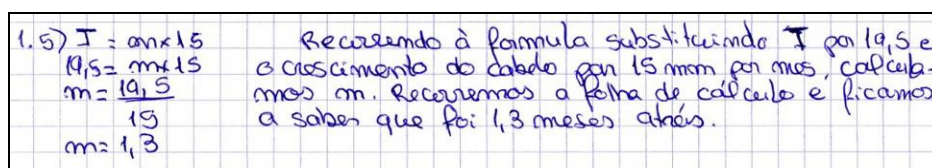 1.5) I = m×15 Recorrendo à formula substituindo I por 19,5 e
19,5 = m×15 o crescimento do cabelo por 15 mm por mes, calcula-
m = 19,5 mos m. Recorremos a folha de cálculo e ficamos
15 a saber que foi 1,3 meses atrás.
m = 1,3